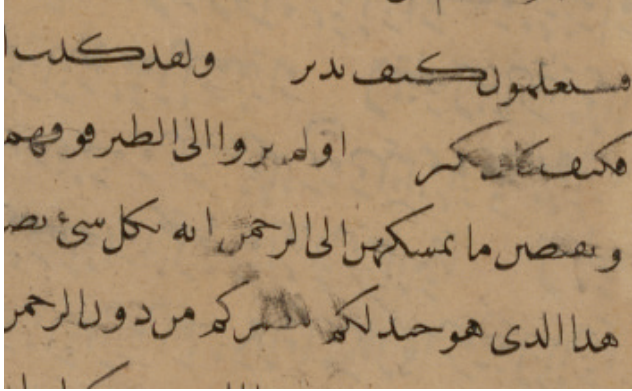 فستعلمون كيف نذير ولقد كذب ا
فكيف كان نكير اولم يروا الى الطير فوقهم
ويقبضن ما يمسكهن الى الرحمن انه بكل شئ بص
هذا الذى هو جند لكم ينصركم من دون الرحمن